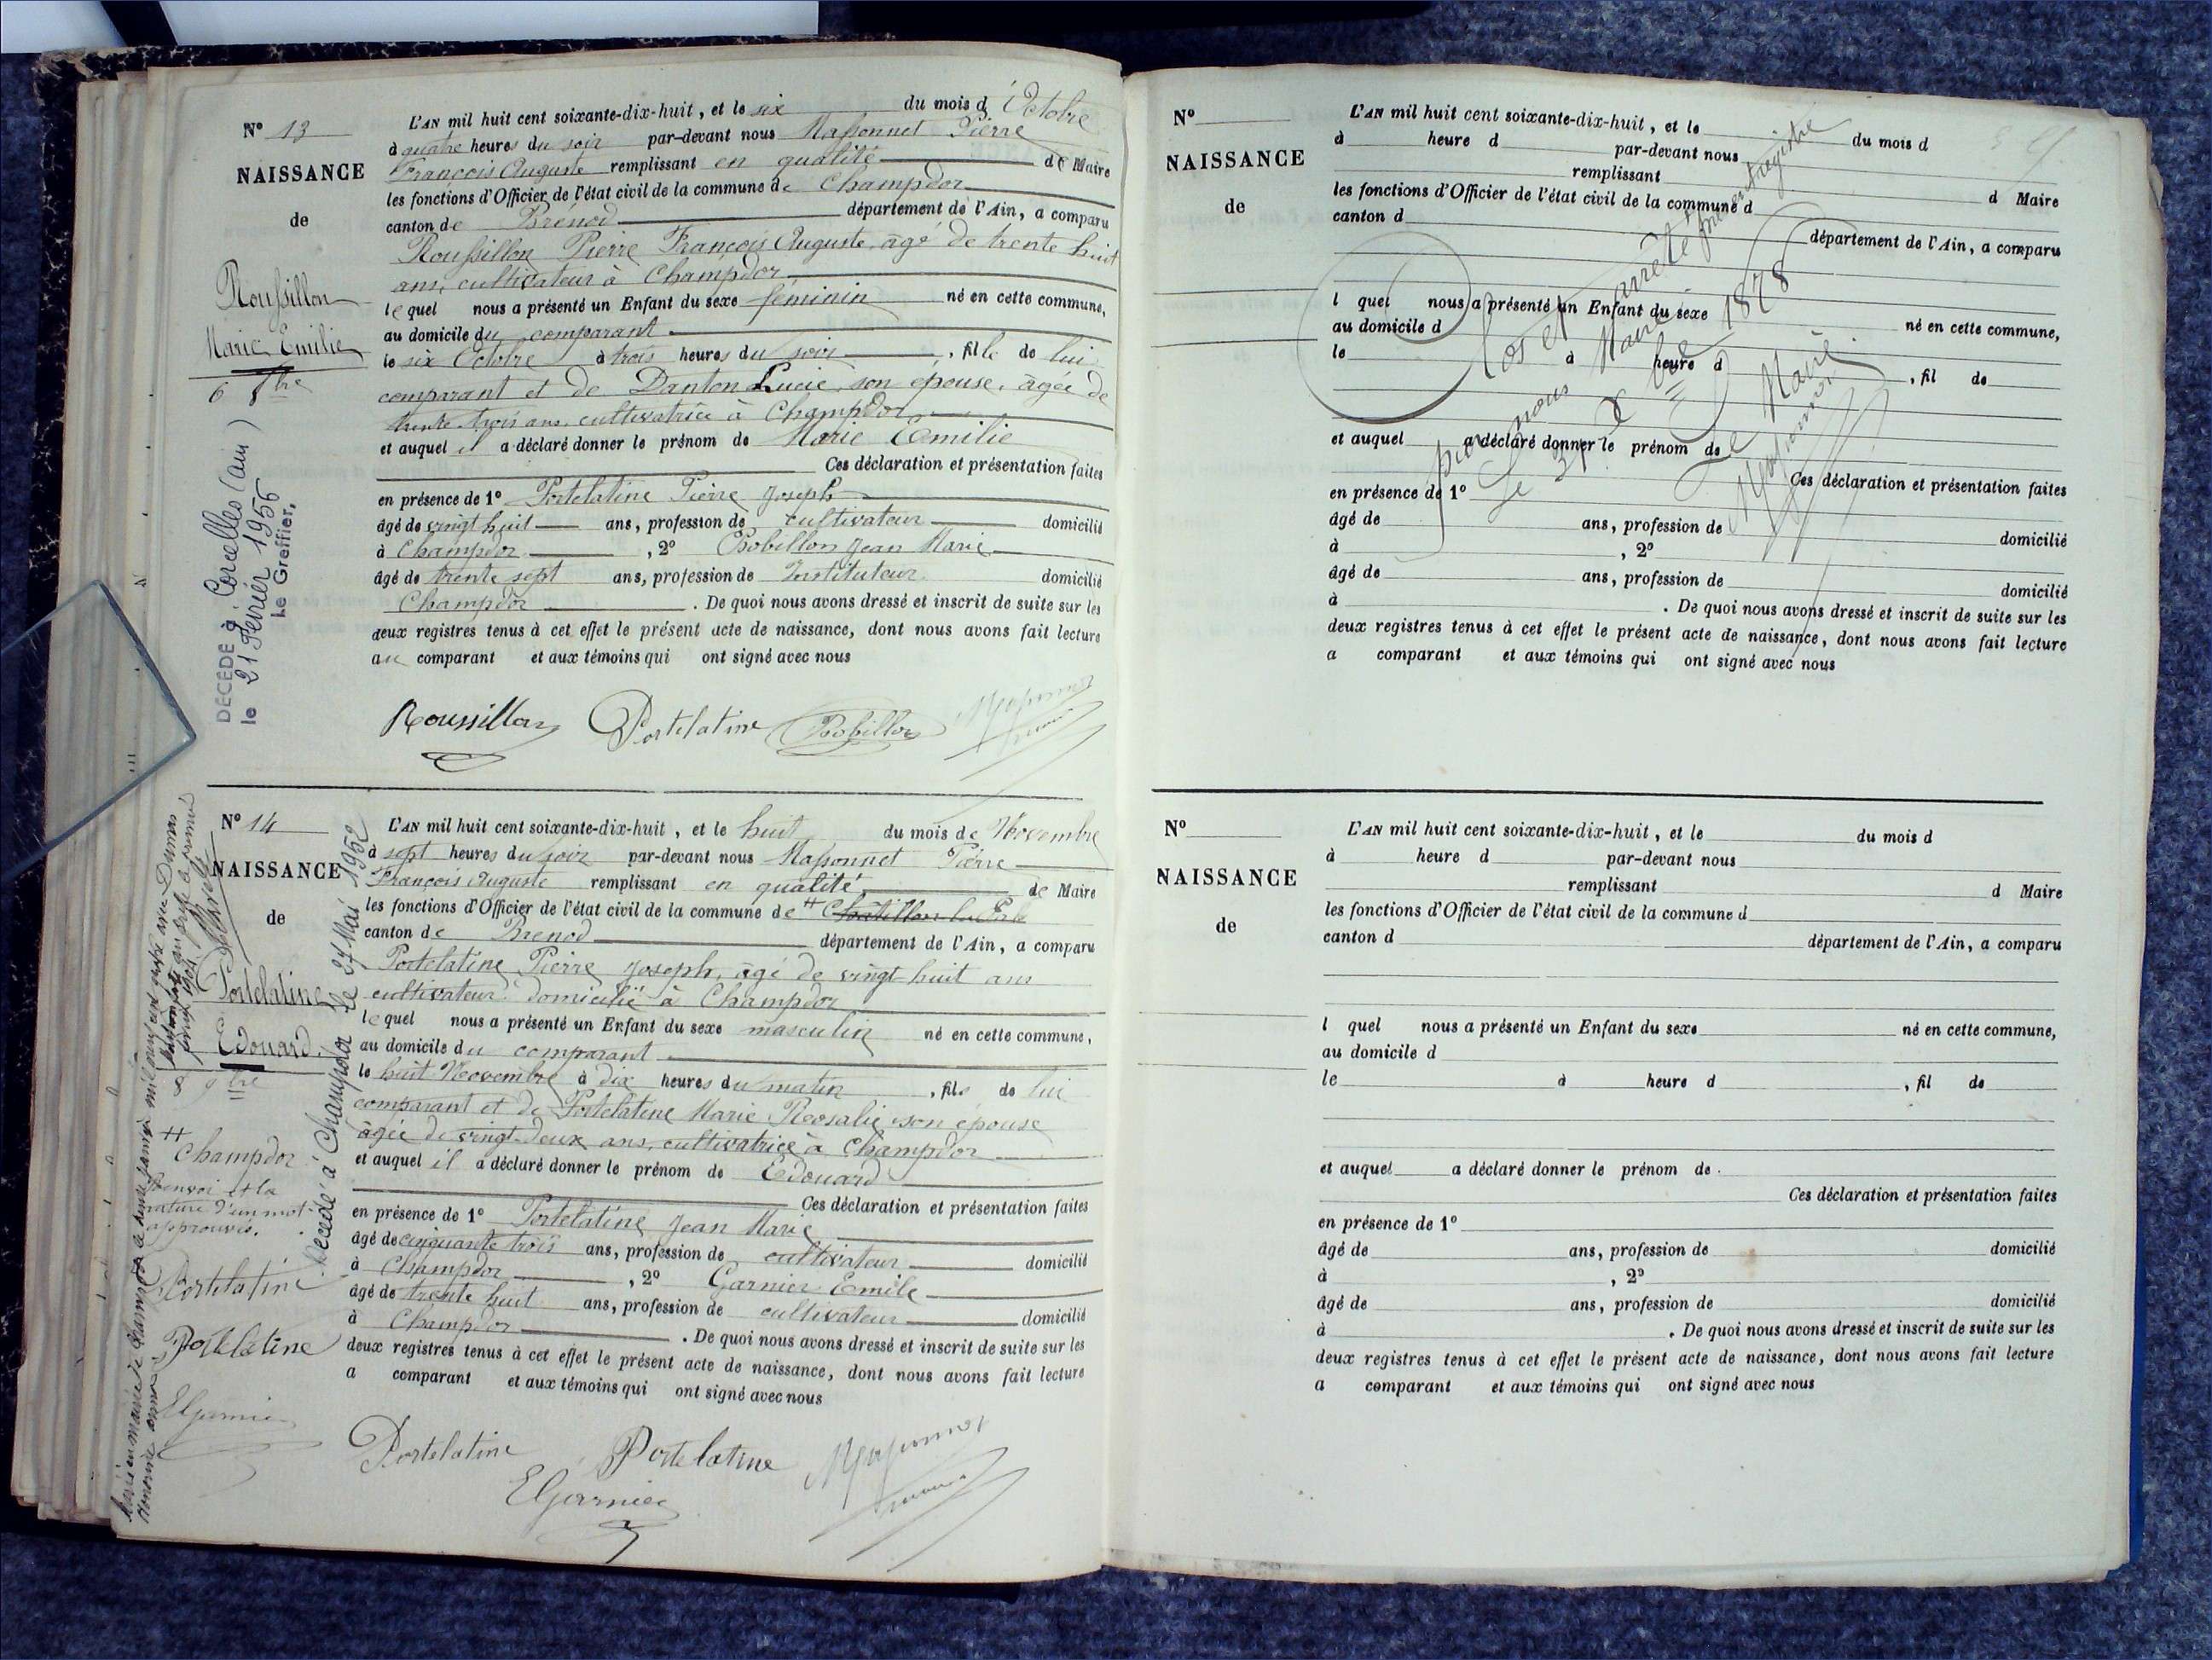 N° 13
NAISSANCE
de
Roussillon
Marie Emilie
6 8bre
DÉCÉDÉ à Corcelles (Ain)
le 21 Février 1955
Le Greffier,
L'AN mil huit cent soixante-dix-huit, et le six du mois d'Octobre
à quatre heures du soir par-devant nous Massonnet Pierre
François Auguste remplissant en qualité de Maire
les fonctions d'Officier de l'état civil de la commune de Champdor
canton de Brénod département de l'Ain, a comparu
Roussillon Pierre François Auguste, âgé de trente huit
ans, cultivateur à Champdor
lequel nous a présenté un Enfant du sexe féminin né en cette commune,
au domicile du comparant
le six Octobre à trois heures du soir, fille de lui
comparant et de Danton Lucie, son épouse, âgée de
trente trois ans, cultivatrice à Champdor
et auquel il a déclaré donner le prénom de Marie Emilie
Ces déclaration et présentation faites
en présence de 1° Portelatine Pierre Joseph
âgé de vingt huit ans, profession de cultivateur domicilié
à Champdor, 2° Bobillon Jean Marie
âgé de trente sept ans, profession de Instituteur domicilié
Champdor. De quoi nous avons dressé et inscrit de suite sur les
deux registres tenus à cet effet le présent acte de naissance, dont nous avons fait lecture
au comparant et aux témoins qui ont signé avec nous
Roussillon Portelatine Bobillon Massonnet
N° 14
NAISSANCE
de
Portelatine
Edouard.
8 9bre
Décédé à Champdor le 27 Mai 1952
# Champdor
Renvoi et la
rature d'un mot
approuvés.
Portelatine
Portelatine
EGarnier
L'AN mil huit cent soixante-dix-huit, et le huit du mois de Novembre
à sept heures du soir par-devant nous Massonnet Pierre
François Auguste remplissant en qualité de Maire
les fonctions d'Officier de l'état civil de la commune de # Châtillon
canton de Brenod département de l'Ain, a comparu
Portelatine Pierre Joseph, âgé de vingt huit ans
cultivateur domicilié à Champdor
lequel nous a présenté un Enfant du sexe masculin né en cette commune,
au domicile du comparant
le huit Novembre à dix heures du matin, fils de lui
comparant et de Portelatine Marie Rosalie son épouse
âgée de vingt-deux ans, cultivatrice à Champdor
et auquel il a déclaré donner le prénom de Edouard
Ces déclaration et présentation faites
en présence de 1° Portelatine Jean Marie
âgé de cinquante trois ans, profession de cultivateur domicilié
à Champdor, 2° Garnier Emile
âgé de trente huit ans, profession de cultivateur domicilié
à Champdor. De quoi nous avons dressé et inscrit de suite sur les
deux registres tenus à cet effet le présent acte de naissance, dont nous avons fait lecture
a comparant et aux témoins qui ont signé avec nous
Portelatine Portelatine Massonnet
EGarnier
N°
NAISSANCE
de
L'AN mil huit cent soixante-dix-huit, et le du mois d
à heure d par-devant nous
remplissant d Maire
les fonctions d'Officier de l'état civil de la commune d
canton d département de l'Ain, a comparu
l quel nous a présenté un Enfant du sexe né en cette commune,
au domicile d
le à heure d, fil de
et auquel a déclaré donner le prénom de
Ces déclaration et présentation faites
en présence de 1°
âgé de ans, profession de domicilié
à, 2°
âgé de ans, profession de domicilié
à. De quoi nous avons dressé et inscrit de suite sur les
deux registres tenus à cet effet le présent acte de naissance, dont nous avons fait lecture
a comparant et aux témoins qui ont signé avec nous
Clos et arrêté
par nous Maire
le 31 Xbre 1878
Le Maire
Massonnet
N°
NAISSANCE
de
L'AN mil huit cent soixante-dix-huit, et le du mois d
à heure d par-devant nous
remplissant d Maire
les fonctions d'Officier de l'état civil de la commune d
canton d département de l'Ain, a comparu
l quel nous a présenté un Enfant du sexe né en cette commune,
au domicile d
le à heure d, fil de
et auquel a déclaré donner le prénom de
Ces déclaration et présentation faites
en présence de 1°
âgé de ans, profession de domicilié
à, 2°
âgé de ans, profession de domicilié
à. De quoi nous avons dressé et inscrit de suite sur les
deux registres tenus à cet effet le présent acte de naissance, dont nous avons fait lecture
a comparant et aux témoins qui ont signé avec nous